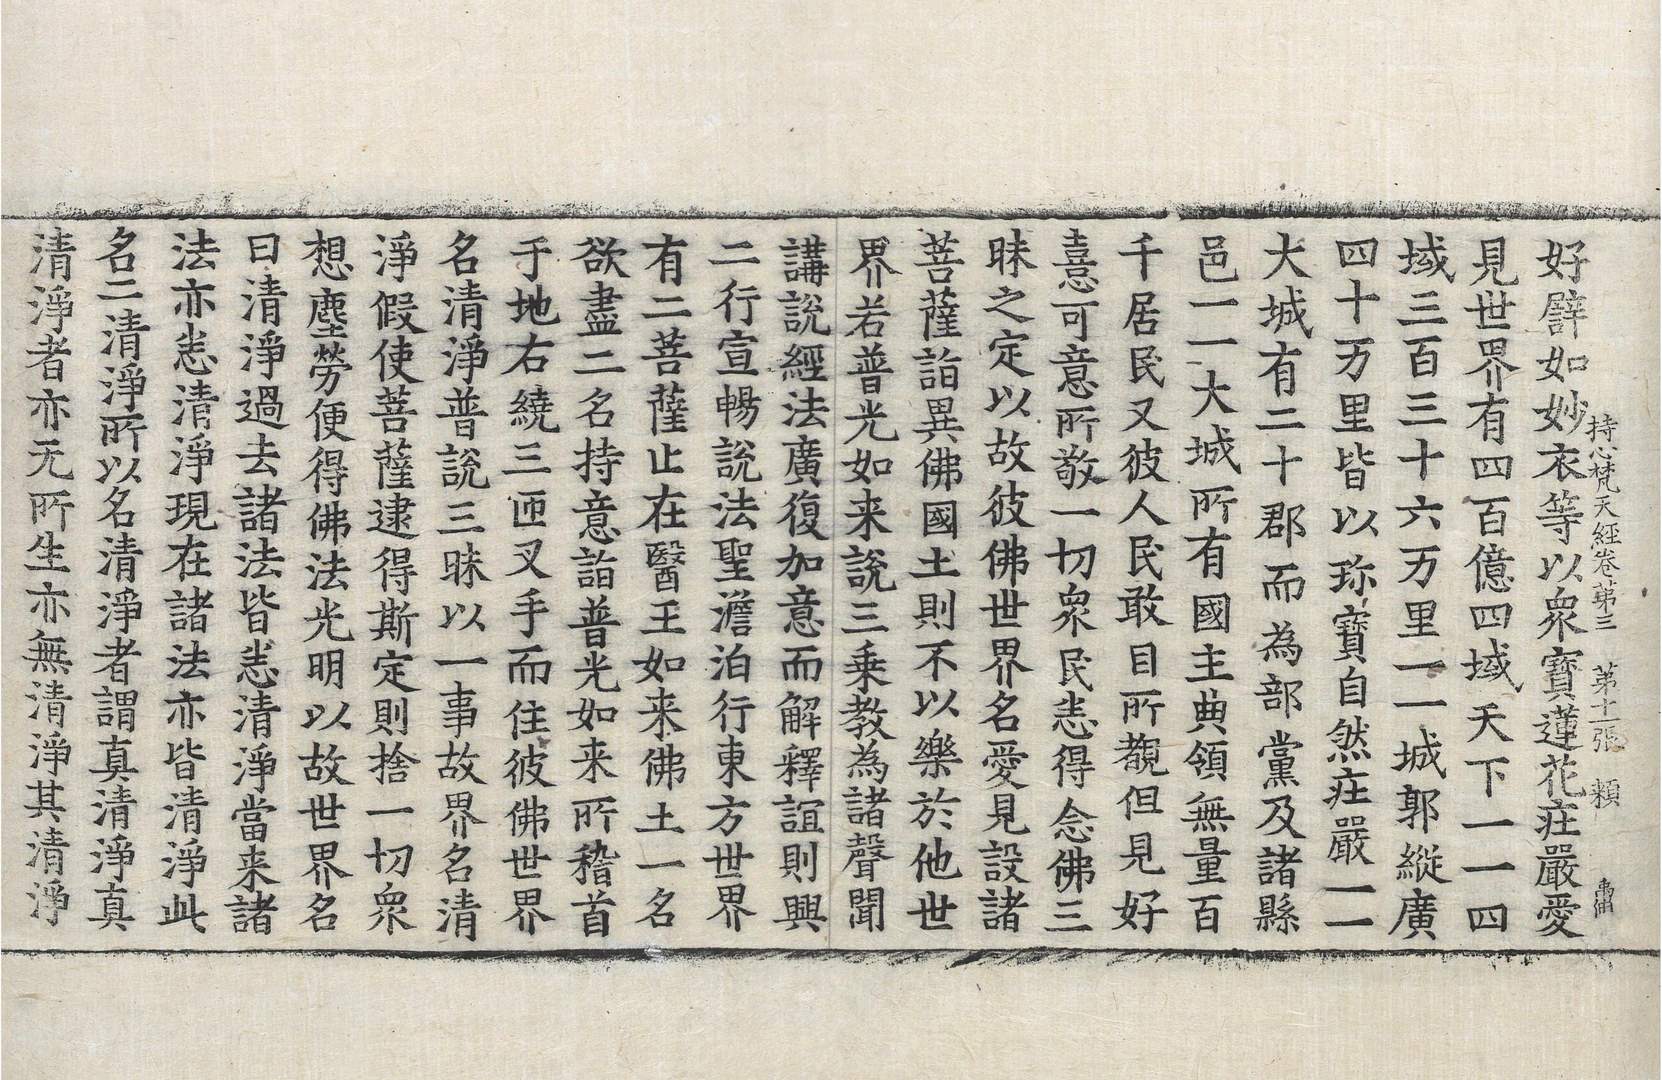 持心梵天經卷第三 第十一張 頪
好譬如妙衣等以衆寶蓮花庄嚴愛
見世界有四百億四域天下一一四
域三百三十六万里一一城郭縱廣
四十万里皆以珎寶自然庄嚴一一
大城有二十郡而為部黨及諸縣
邑一一大城所有國主典領無量百
千居民又彼人民敢目所覩但見好
憙可意所敬一切衆民悉得念佛三
昧之定以故彼佛世界名愛見設諸
菩薩詣異佛國土則不以樂於他世
界若普光如来說三乘教為諸聲聞
講説經法廣復加意而解釋誼則興
二行宣暢說法聖澹泊行東方世界
有二菩薩止在醫王如来佛土一名
欲盡二名持意詣普光如来所稽首
于地右繞三匝叉手而住彼佛世界
名清淨普說三昧以一事故界名清
淨假使菩薩逮得斯定則捨一切衆
想塵勞便得佛法光明以故世界名
曰清淨過去諸法皆悉清淨當来諸
法亦悉清淨現在諸法亦皆清淨此
名二清淨所以名清淨者謂真清淨真
清淨者亦无所生亦無清淨其清淨